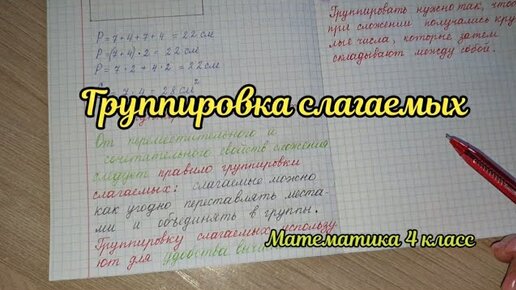 P = 7 + 4 + 7 + 4 = 22 см
P = (7 + 4) · 2 = 22 см
P = 7 · 2 + 4 · 2 = 22 см
= 7 · 4 = 28 см²
Группировка слагаемых
От переместительного и
сочетательного свойств сложения
следует правило группировки
слагаемых: слагаемые можно
как угодно переставлять места-
ми и объединять в группы.
Группировку слагаемых использу
ют для удобства
Группировать нужно так, что
при сложении получались кру
лые числа, которые затем
складывают между собой.
Математика 4 класс